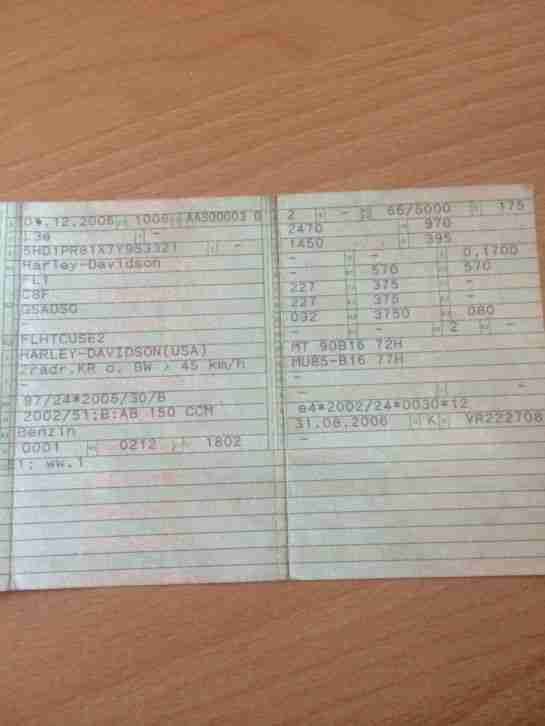 .12.2006 1006 AAS00003 0
L3e -
5HD1PR81X7Y953321 -
Harley-Davidson
FL1
C8F
GSADSG
FLHTCUSE2
HARLEY-DAVIDSON(USA)
2rädr.KR o. BW > 45 km/h
-
97/24*2005/30/B
2002/51;B:AB 150 CCM
Benzin
0001 0212 1802
1: WW.1
2 - 65/5000 175
2470 970
1450 395
- - 0,1700
- 570 570
227 375 -
227 375 -
092 3750 080
- - 2 -
MT 90B16 72H
MU85-B16 77H
-
- -
e4*2002/24*0030*12
31.08.2006 K VR222708
-